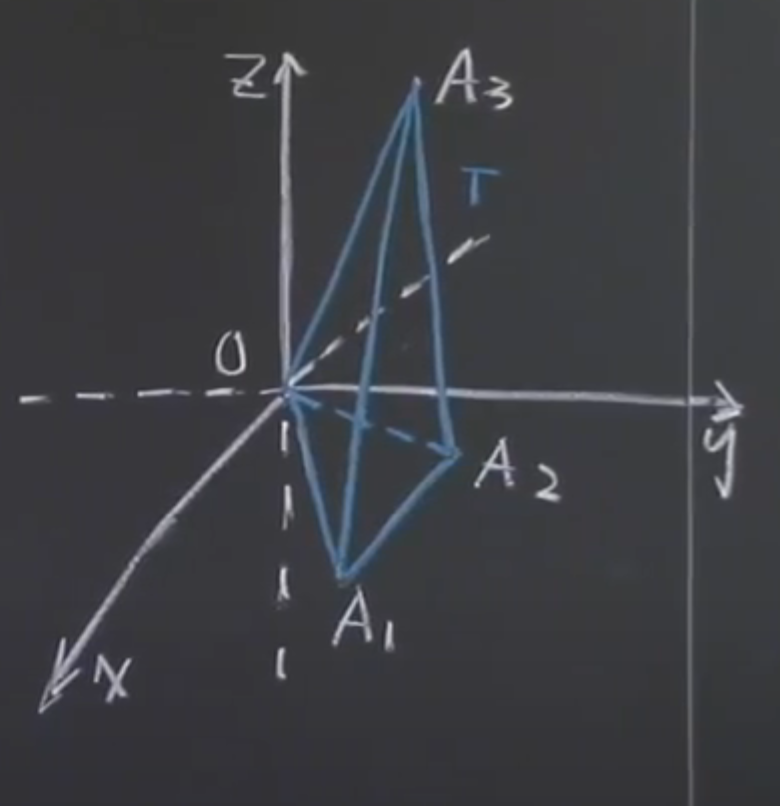 Z
A3
T
O
y
A2
A1
x